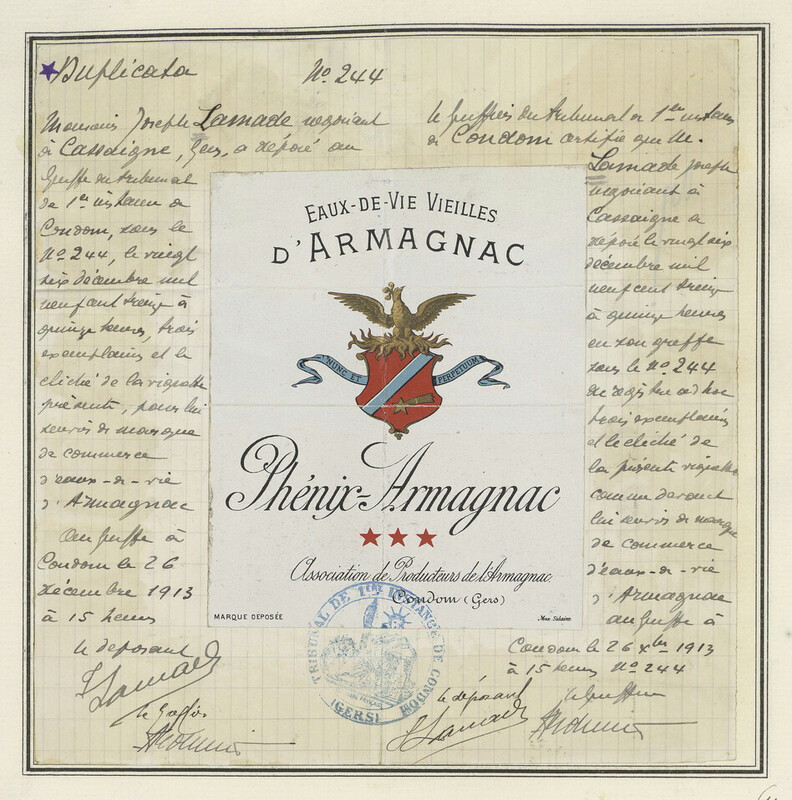 Duplicata
Nº 244
Monsieur Joseph Lamade négociant
à Cassaigne, Gers, a déposé au
Greffe du tribunal
de 1ère instance de
Condom, sous le
Nº 244, le vingt
six décembre mil
neuf cent treize à
quinze heures, trois
exemplaires et le
cliché de la vignette
présente, pour lui
servir de marque
de commerce
d'eaux-de-vie
d'Armagnac
Au Greffe à
Condom le 26
décembre 1913
à 15 heures
le déposant
Lamade
le Greffier
Le Greffier du tribunal de 1ère instance
de Condom certifie que M.
Lamade Joseph
négociant à
Cassaigne a
déposé le vingt six
décembre mil
neuf cent treize
à quinze heures
en son greffe
sous le Nº 244
du registre ad hoc
trois exemplaires
et le cliché de
la présente vignette
comme devant
lui servir de marque
de commerce
d'eaux-de-vie
d'Armagnac
au Greffe à
Condom le 26 Xbre 1913
à 15 heures Nº 244
le déposant
le Greffier
Lamade
EAUX-DE-VIE VIEILLES
D'ARMAGNAC
NUNC ET PERPETUUM
Phénix-Armagnac
Association de Producteurs de l'Armagnac
Condom (Gers)
MARQUE DEPOSÉE
TRIBUNAL DE 1ère INSTANCE DE CONDOM
(GERS)